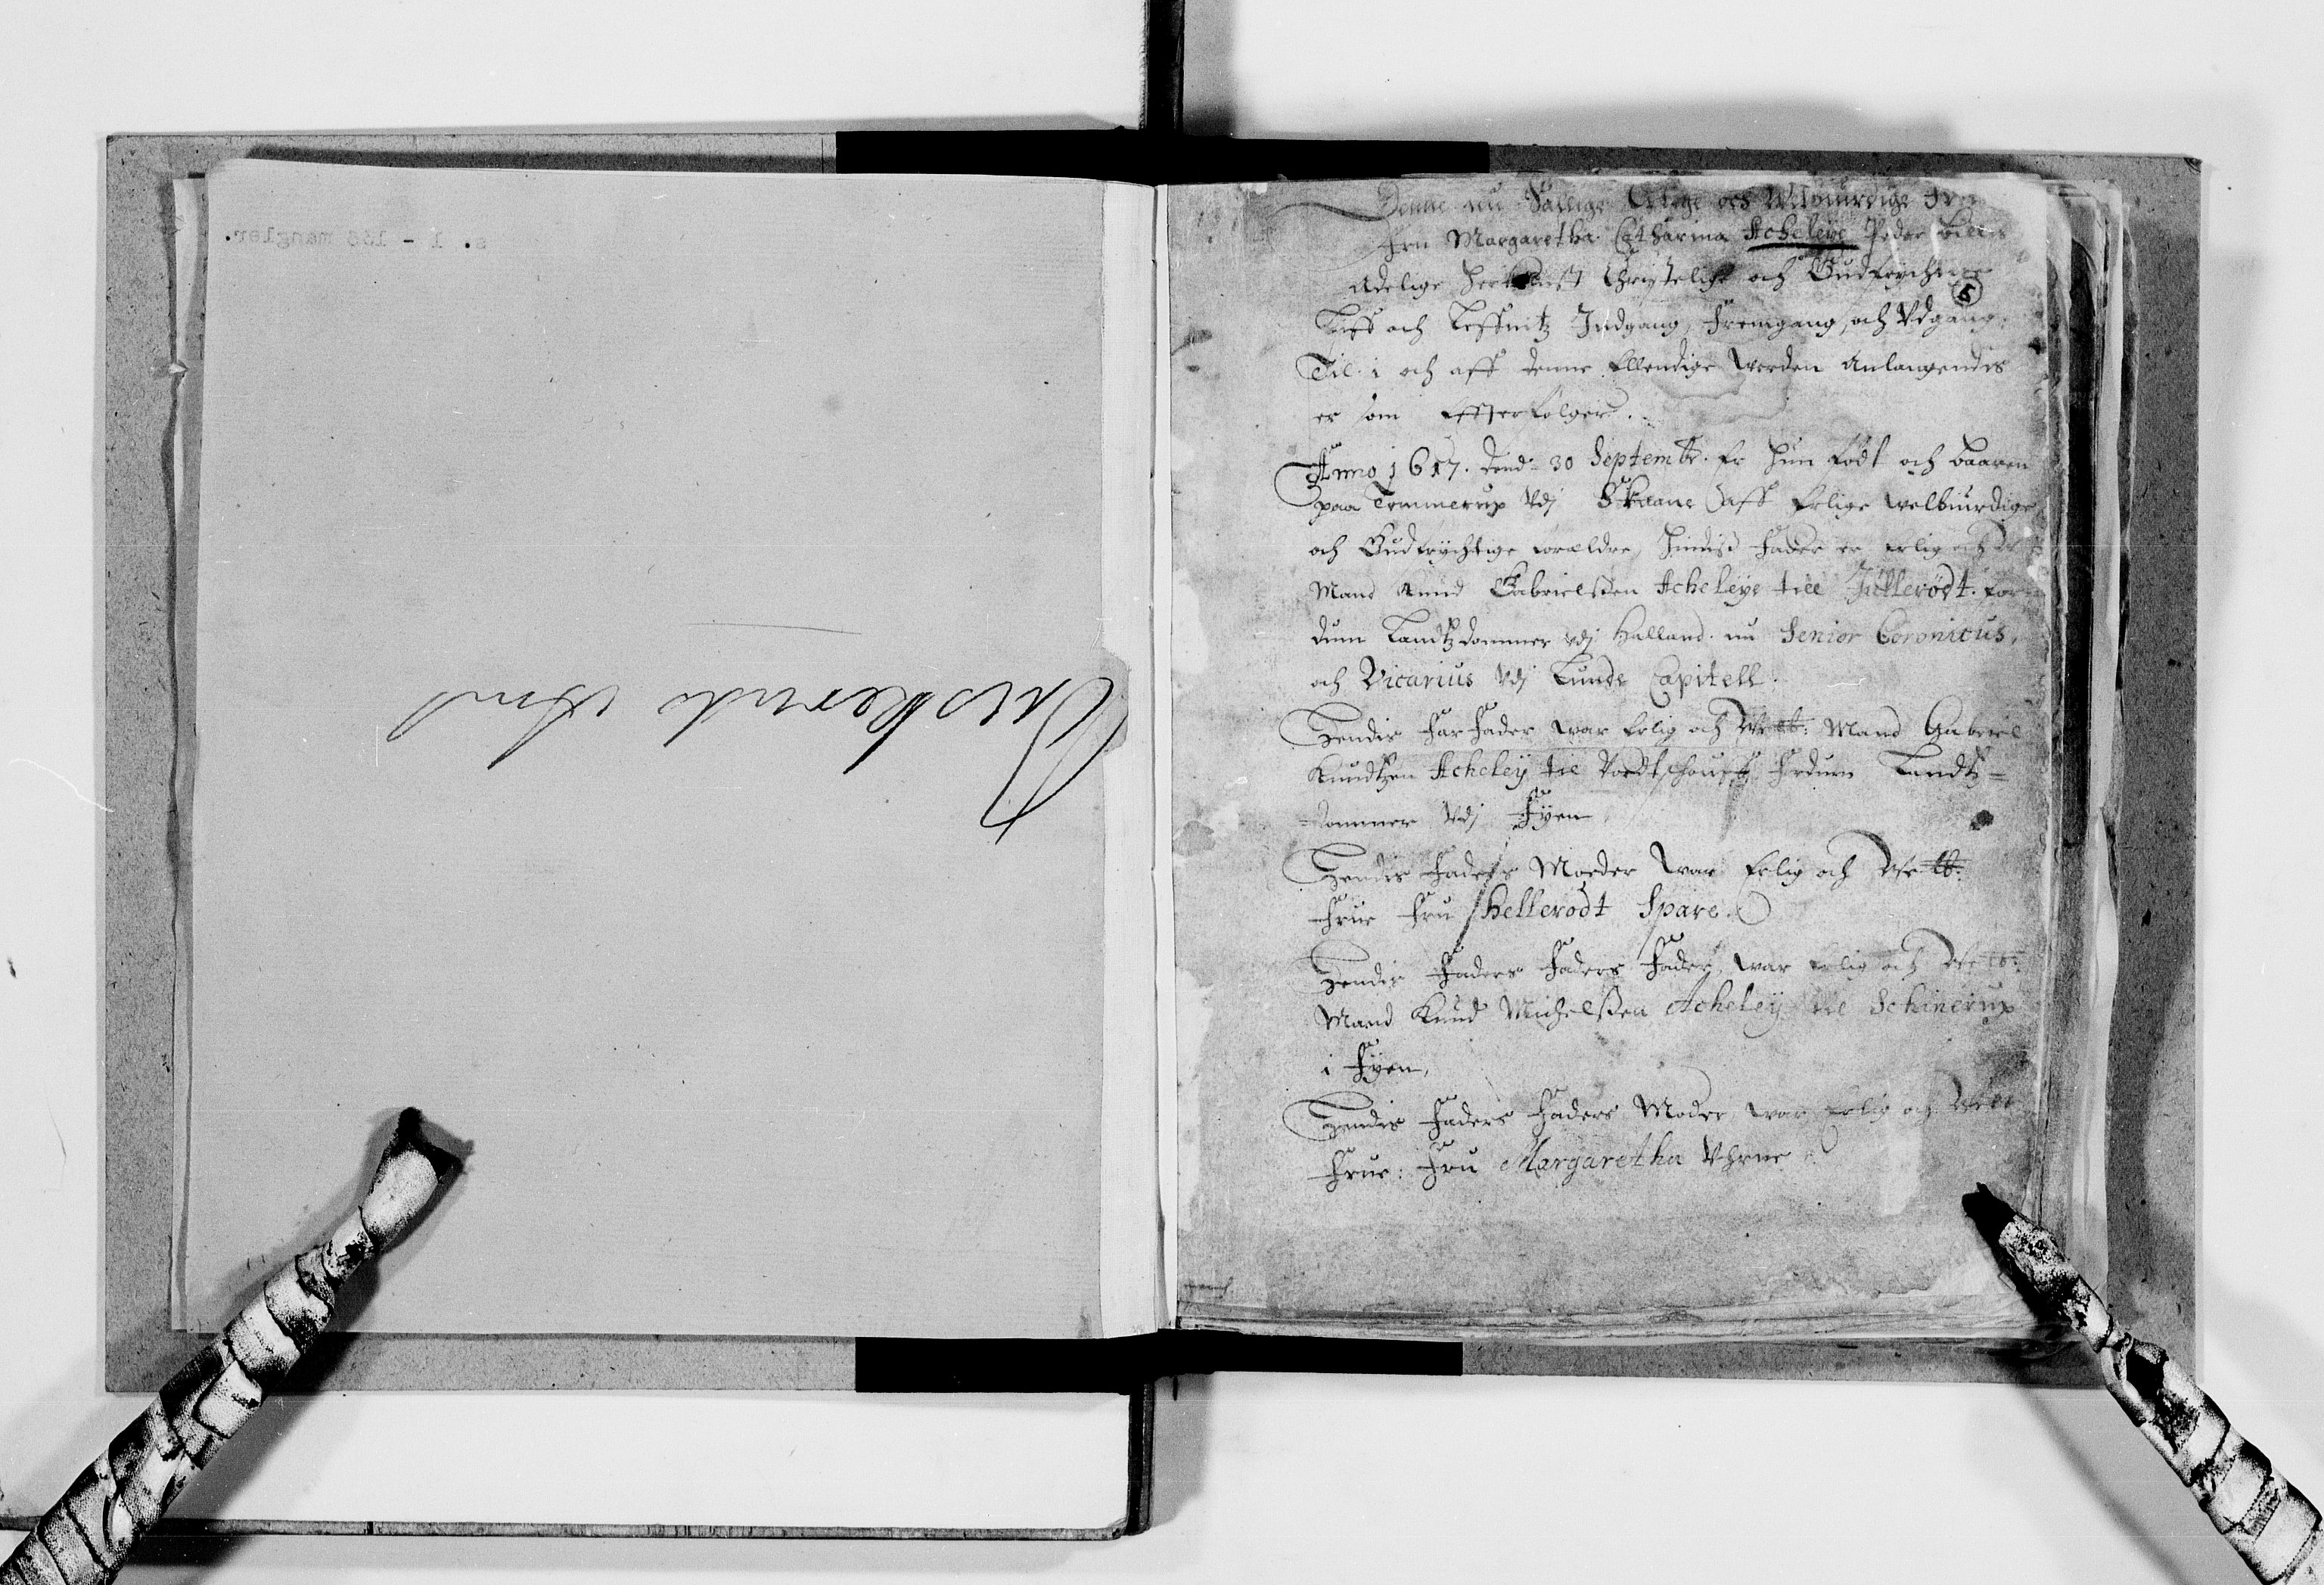 s. 1 - 136 mangler.
Buskeruds Amt
Denne nu Sallige Erlige och Welbiurdige Frue
Fru Margaretha Catharina Acheleye Peder Billes
Adelige Herkomst Christelige och Gudfrychtige
5
Liffs och Leffnitz Indgang, Fremgang, och Vdgang,
Til i och aff denne Ellendige Werden Anlangendis
er som Effterfølger.
Anno 1617. Dend 30 Septembr. Er Hun Født och Baaren
paa Tommerup Vdj Skaane aff Erlige welbiurdige
och Gudfrychtige Forældre, Hindis Fader er Erlig och
Mand Knud Gabrielssen Acheleye till Jullerødt. For-
dum Landtzdommer vdj Halland. nu Senior Coronicus,
och Vicarius Vdj Lunde Capitell.
Hendis FarFader war Erlig och Welb: Mand Gabriel
Knudtzen Acheley til Fordum Landtz=
=dommer Vdj Fyen
Hendis Faders Moeder war Erlig och Welb:
Frue Fru Hellerodt Spare.
Hendis Faders Faders Fader, war Erlig och Welb:
Mand Knud Michelssen Acheley til Schinerup
i Fyen,
Hendis Faders Faders Moder war Erlig och Welb
Frue: Fru Margaretha Vhrne